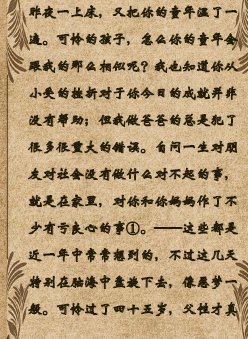 昨夜一上床，又把你的童年温了一
遍。可怜的孩子，怎么你的童年会
跟我的那么相似呢？我也知道你从
小受的挫折对于你今日的成就并非
没有帮助；但我做爸爸的总是犯了
很多很重大的错误。自问一生对朋
友对社会没有做什么对不起的事，
就是在家里，对你和你妈妈作了不
少有亏良心的事①。——这些都是
近一年中常常想到的，不过这几天
特别在脑海中盘旋下去，像恶梦一
般。可怜过了四十五岁，父性才真